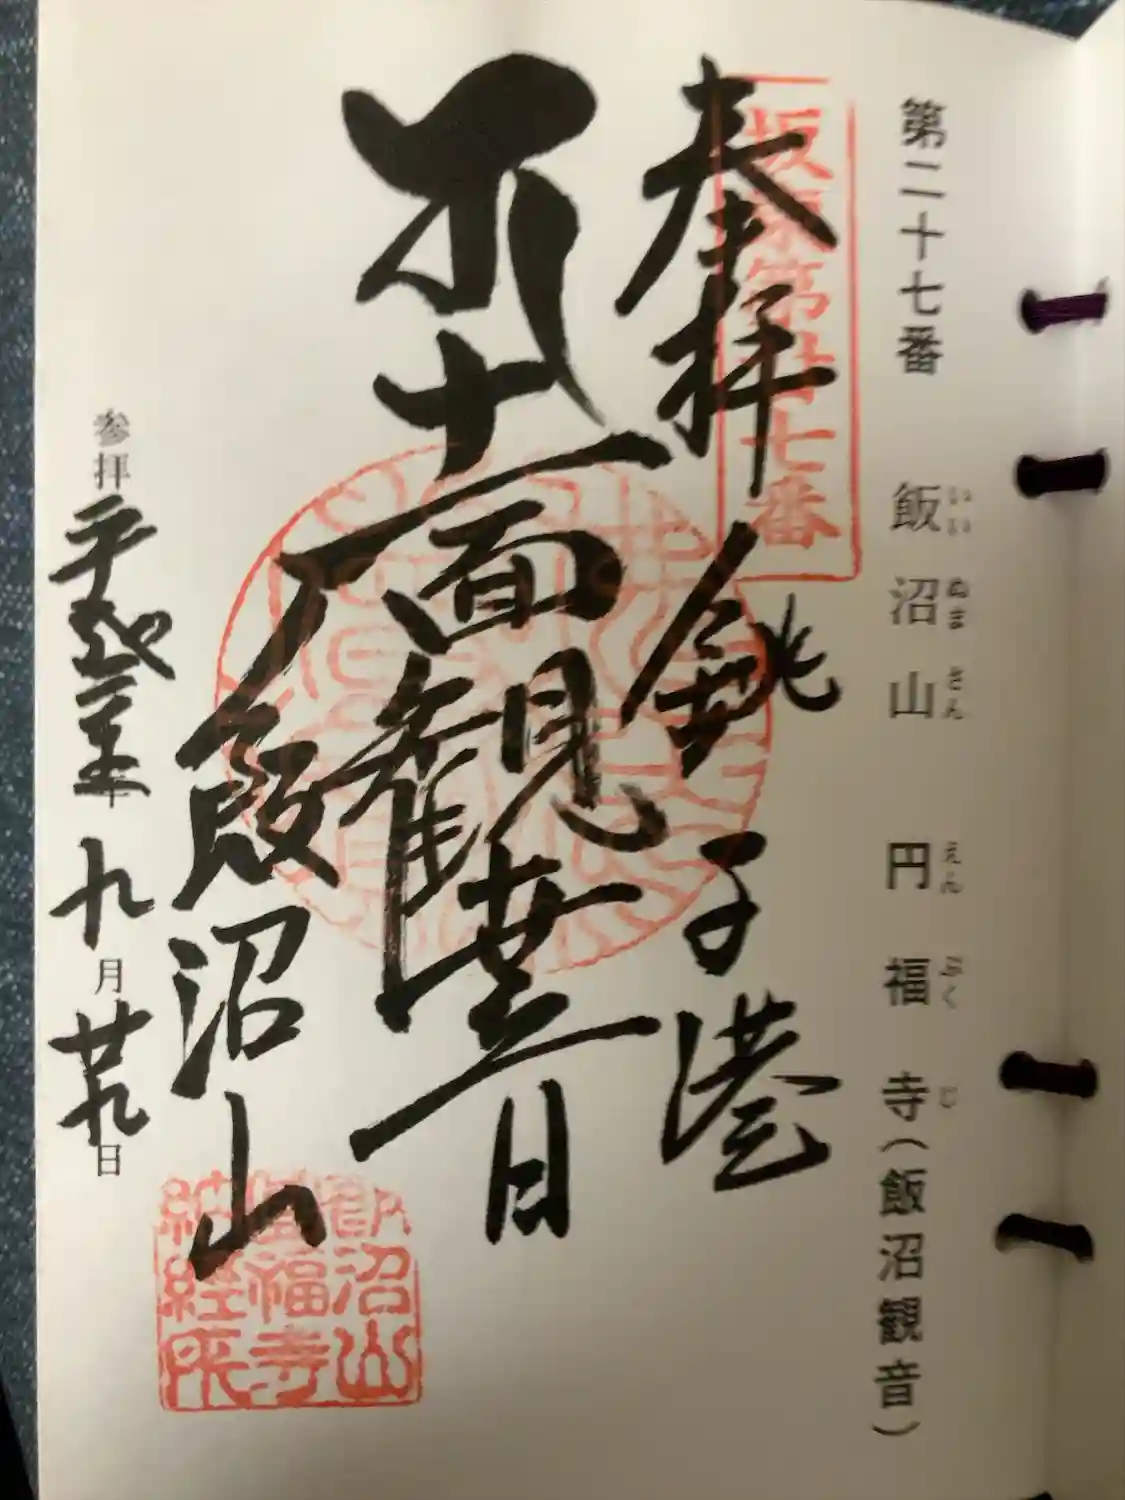 第二十七番 飯沼山 円福寺（飯沼観音）
いいぬまさん えんぷくじ
坂東第廿七番
奉拝 銚子港
十一面観世音
飯沼山
参拝 平成 年 九月廿九日
飯沼山
圓福寺
納経所